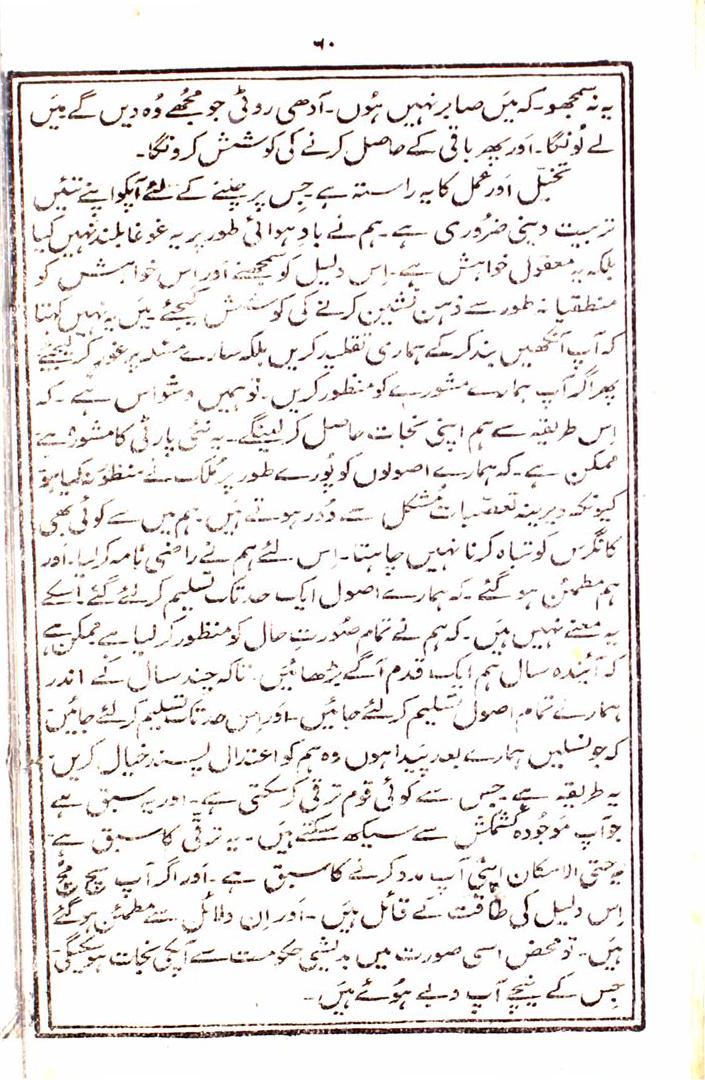 ۶۰
یہ نہ سمجھو۔ کہ میں صابر نہیں ہوں۔ آدھی روٹی جو مجھے وہ دیں گے میں
لے لونگا۔ اور پھر باقی کے حاصل کرنے کی کوشش کرونگا۔
تخیل اور عمل کا یہ راستہ ہے جس پر چلنے کے لئے آپکو اپنے تئیں
تربیت دینی ضروری ہے۔ ہم نے باد ہوائی طور پر یہ غوغا بلند نہیں کیا
بلکہ یہ معقول خواہش ہے۔ اس دلیل کو سمجھئے اور اس خواہش کو
منطقیانہ طور سے ذہن نشین کرنے کی کوشش کیجئے میں یہ نہیں کہتا
کہ آپ آنکھیں بند کر کے ہماری تقلید کریں بلکہ سارے مسئلہ پر غور کر لیجئے
پھر اگر آپ ہمارے مشورے کو منظور کریں۔ تو ہمیں وشواس ہے۔ کہ
اس طریقہ سے ہم اپنی نجات حاصل کر لینگے۔ یہ نئی پارٹی کا مشورہ ہے
ممکن ہے۔ کہ ہمارے اصولوں کو پورے طور پر ملک نے منظور نہ کیا ہو
کیونکہ دیرینہ تعصبات مشکل سے دور ہوتے ہیں۔ ہم میں سے کوئی بھی
کانگرس کو تباہ کرنا نہیں چاہتا۔ اس لئے ہم نے راضی نامہ کر لیا۔ اور
ہم مطمئن ہو گئے۔ کہ ہمارے اصول ایک حد تک تسلیم کر لئے گئے اسکے
یہ معنے نہیں ہیں۔ کہ ہم نے تمام صورت حال کو منظور کر لیا ہے ممکن ہے
کہ آئیندہ سال ہم ایک قدم آگے بڑھائیں۔ تاکہ چند سال کے اندر
ہمارے تمام اصول تسلیم کر لئے جائیں۔ اور اس حد تک تسلیم کر لئے جائیں
کہ جو نسلیں ہمارے بعد پیدا ہوں وہ ہم کو اعتدال پسند خیال کریں
یہ طریقہ ہے جس سے کوئی قوم ترقی کر سکتی ہے۔ اور یہ سبق ہے
جو آپ موجودہ کشمکش سے سیکھ سکتے ہیں۔ یہ ترقی کا سبق ہے
یہ حتی الامکان اپنی آپ مدد کرنے کا سبق ہے۔ اور اگر آپ سچ مچ
اس دلیل کی طاقت کے قائل ہیں۔ اور ان دلائل سے مطمئن ہو گئے
ہیں۔ تو محض اسی صورت میں بدیشی حکومت سے آپکی نجات ہو سکیگی
جس کے نیچے آپ دبے ہوئے ہیں۔